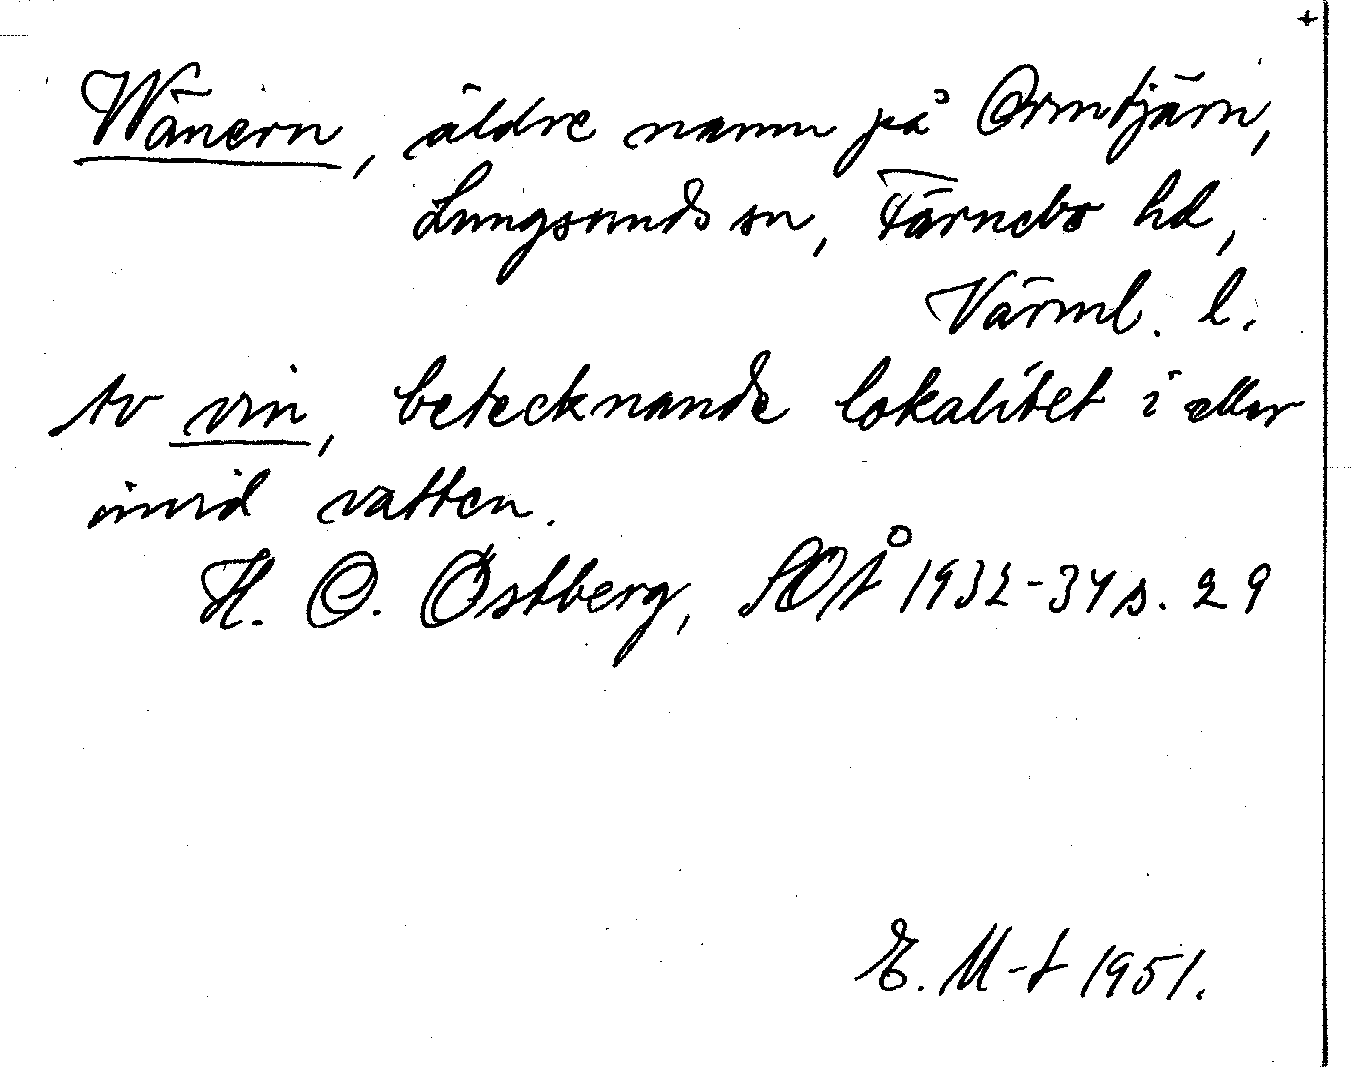 +
Wänern, äldre namn på Ormtjärn,
Lungsunds sn, Färnebo hd,
Värml. l.
Av vin, betecknande lokalitet i eller
invid vatten.
H. O. Östberg, SOÅ 1932-34 s. 29
E. M-t 1951.